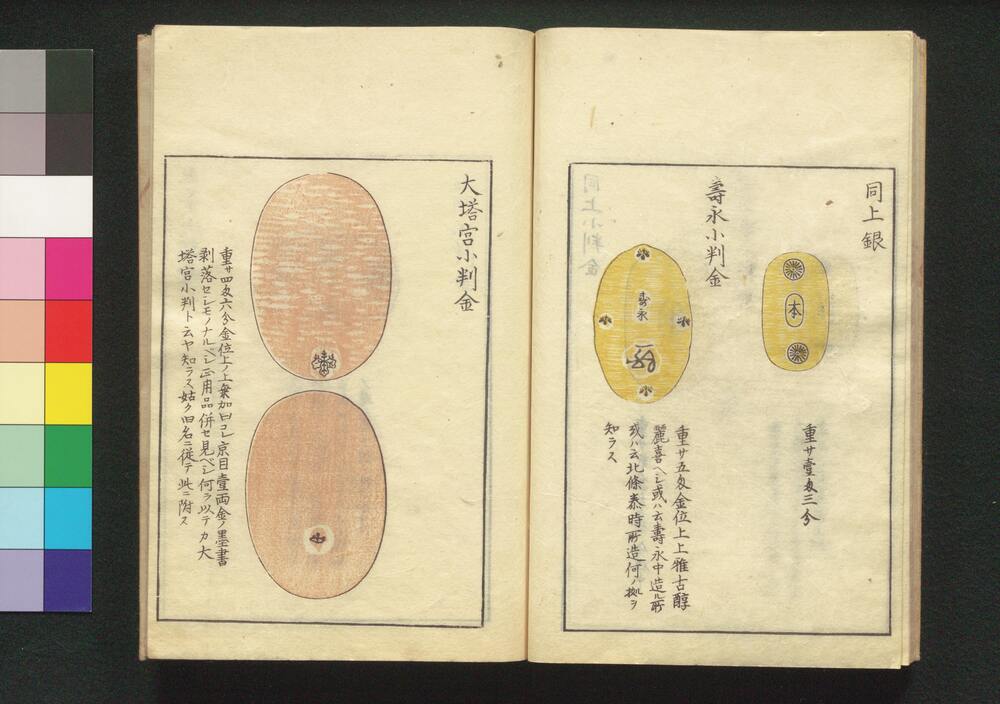 同上銀
本
重サ壹匁三分
壽永小判金
壽永
重サ五匁金位上上雅古醇
麗喜ヘシ或ハ云壽永中造ル所
或ハ云北條泰時所造何ノ拠ヲ
知ラス
大塔宮小判金
重サ四匁六分金位上ノ上衆加曰コレ京目壹両金ノ墨書
剥落セシモノナルヘシ正用品併セ見ベシ何ヲ以テカ大
塔宮小判ト云ヤ知ラス姑ク旧名ニ従テ此ニ附ス